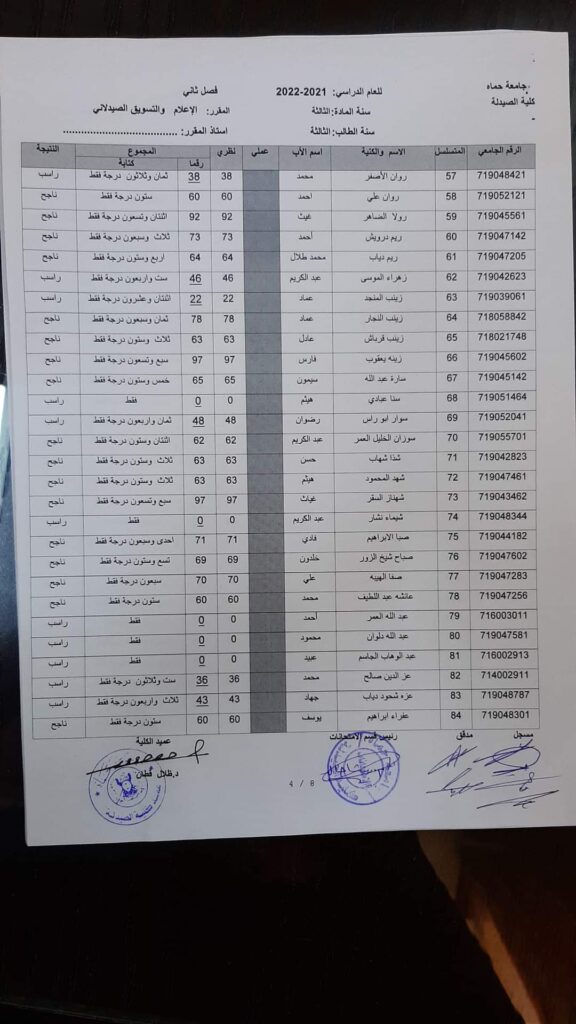 جامعة حماه
كلية الصيدلة
للعام الدراسي: 2021-2022
فصل ثاني
سنة المادة: الثالثة
المقرر: الإعلام والتسويق الصيدلاني
سنة الطالب: الثالثة
استاذ المقرر: ......................................
الرقم الجامعي المتسلسل الاسم والكنية اسم الأب عملي نظري المجموع النتيجة
رقما كتابة
719048421 57 روان الأصفر محمد 38 38 ثمان وثلاثون درجة فقط راسب
719052121 58 روان علي احمد 60 60 ستون درجة فقط ناجح
719045561 59 رولا الضاهر غيث 92 92 اثنتان وتسعون درجة فقط ناجح
719047142 60 ريم درويش أحمد 73 73 ثلاث وسبعون درجة فقط ناجح
719047205 61 ريم دياب محمد طلال 64 64 اربع وستون درجة فقط ناجح
719042623 62 زهراء الموسى عبد الكريم 46 46 ست واربعون درجة فقط راسب
719039061 63 زينب المنجد عماد 22 22 اثنتان وعشرون درجة فقط راسب
718058842 64 زينب النجار عماد 78 78 ثمان وسبعون درجة فقط ناجح
718021748 65 زينب قرباش عادل 63 63 ثلاث وستون درجة فقط ناجح
719045602 66 زينه يعقوب فارس 97 97 سبع وتسعون درجة فقط ناجح
719045142 67 سارة عبد الله سيمون 65 65 خمس وستون درجة فقط ناجح
719051464 68 سنا عبادي هيثم 0 0 فقط راسب
719052041 69 سوار ابو راس رضوان 48 48 ثمان واربعون درجة فقط راسب
719055701 70 سوزان الخليل العمر عبد الكريم 62 62 اثنتان وستون درجة فقط ناجح
719042823 71 شذا شهاب حسن 63 63 ثلاث وستون درجة فقط ناجح
719047461 72 شهد المحمود هيثم 63 63 ثلاث وستون درجة فقط ناجح
719043462 73 شهناز السقر غياث 97 97 سبع وتسعون درجة فقط ناجح
719048344 74 شيماء نشار عبد الكريم 0 0 فقط راسب
719044182 75 صبا الابراهيم فادي 71 71 احدى وسبعون درجة فقط ناجح
719047602 76 صباح شيخ الزور خلدون 69 69 تسع وستون درجة فقط ناجح
719047283 77 صفا الهيبه علي 70 70 سبعون درجة فقط ناجح
719047256 78 عائشه عبد اللطيف محمد 60 60 ستون درجة فقط ناجح
716003011 79 عبد الله العمر أحمد 0 0 فقط راسب
719047581 80 عبد الله دلوان محمود 0 0 فقط راسب
716002913 81 عبد الوهاب الجاسم عبيد 0 0 فقط راسب
714002911 82 عز الدين صالح محمد 36 36 ست وثلاثون درجة فقط راسب
719048787 83 عزه شحود دياب جهاد 43 43 ثلاث واربعون درجة فقط راسب
719048301 84 عفراء ابراهيم يوسف 60 60 ستون درجة فقط ناجح
مسجل مدقق رئيس قسم الامتحانات عميد الكلية
د.طلال قطان
4 / 8